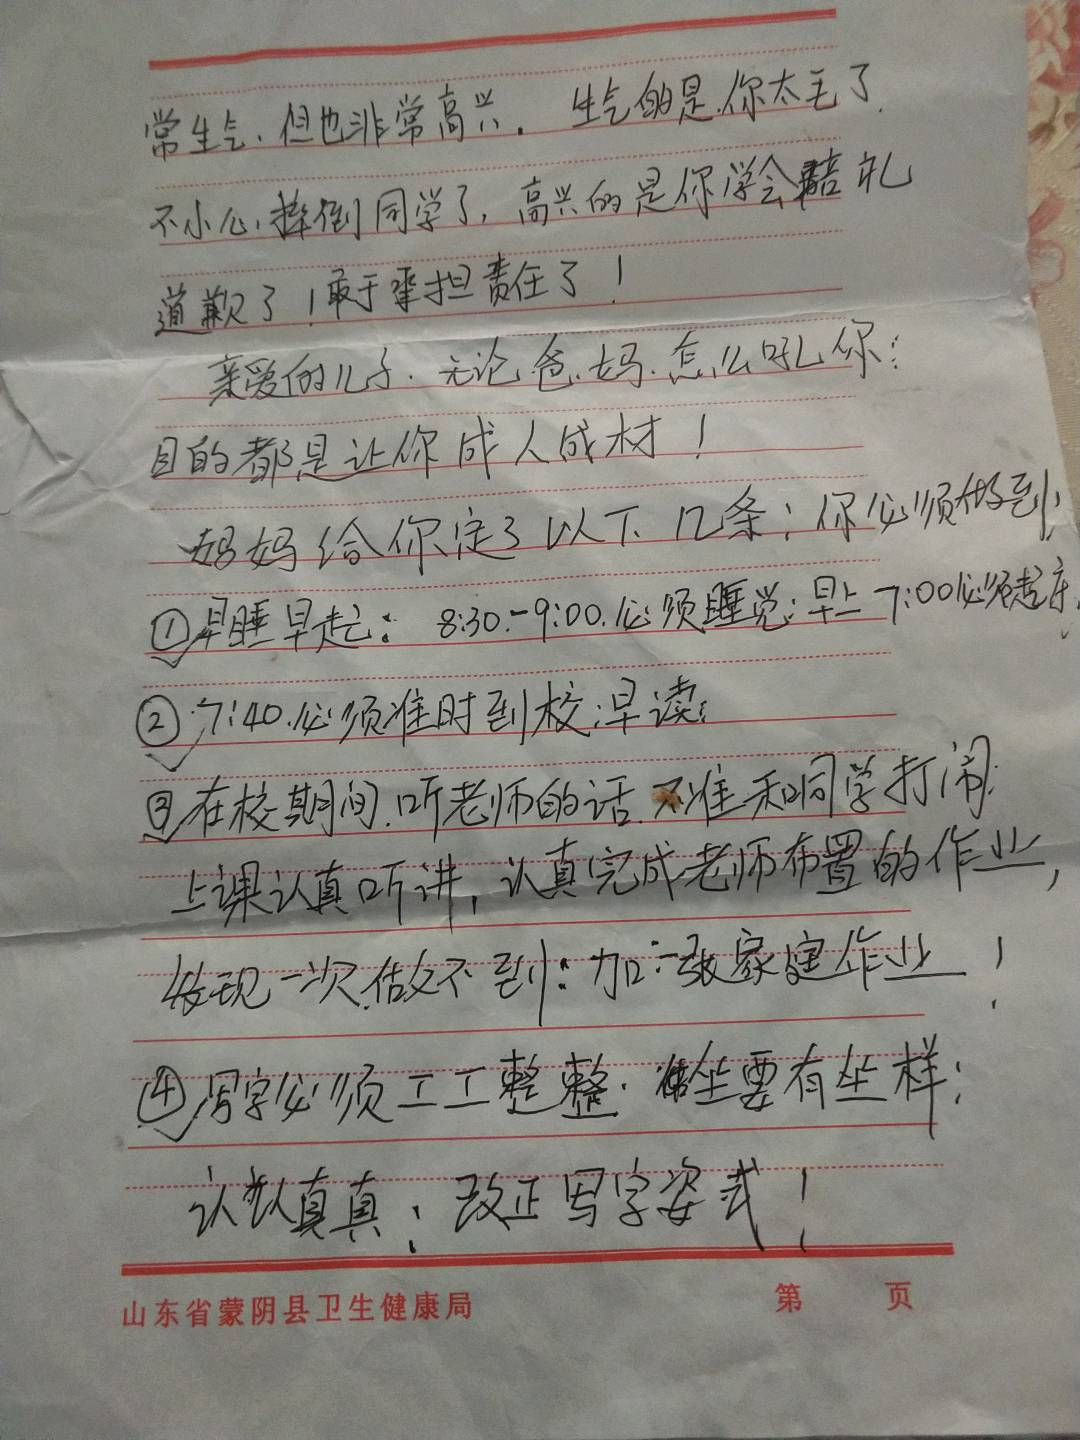 常生气.但也非常高兴. 生气的是.你太毛了.
不小心.摔倒同学了,高兴的是你学会赔礼
道歉了!敢于承担责任了!
亲爱的儿子.无论爸.妈.怎么吼你:
目的都是让你成人成材!
妈妈给你定了以下几条:你必须做到
①早睡早起: 8:30.-9:00.必须睡觉;早上7:00必须起床.
②.7:40.必须准时到校;早读;
③在校期间.听老师的话.不准和同学打闹.
上课认真听讲,认真完成老师布置的作业,
发现一次.做不到:加一张家庭作业!
④写字必须工工整整.坐要有坐样;
认认真真;改正写字姿式!
山东省蒙阴县卫生健康局 第 页